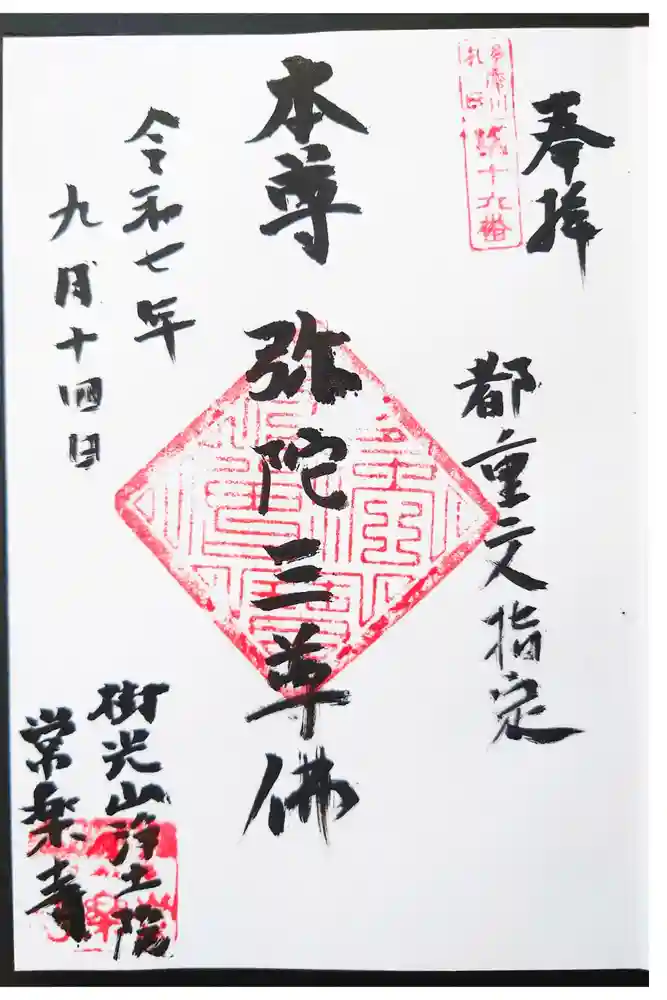 奉拝
多摩川
札所
第十九番
都重文指定
本尊 弥陀三尊佛
令和七年
九月十四日
街光山浄土院
常楽寺